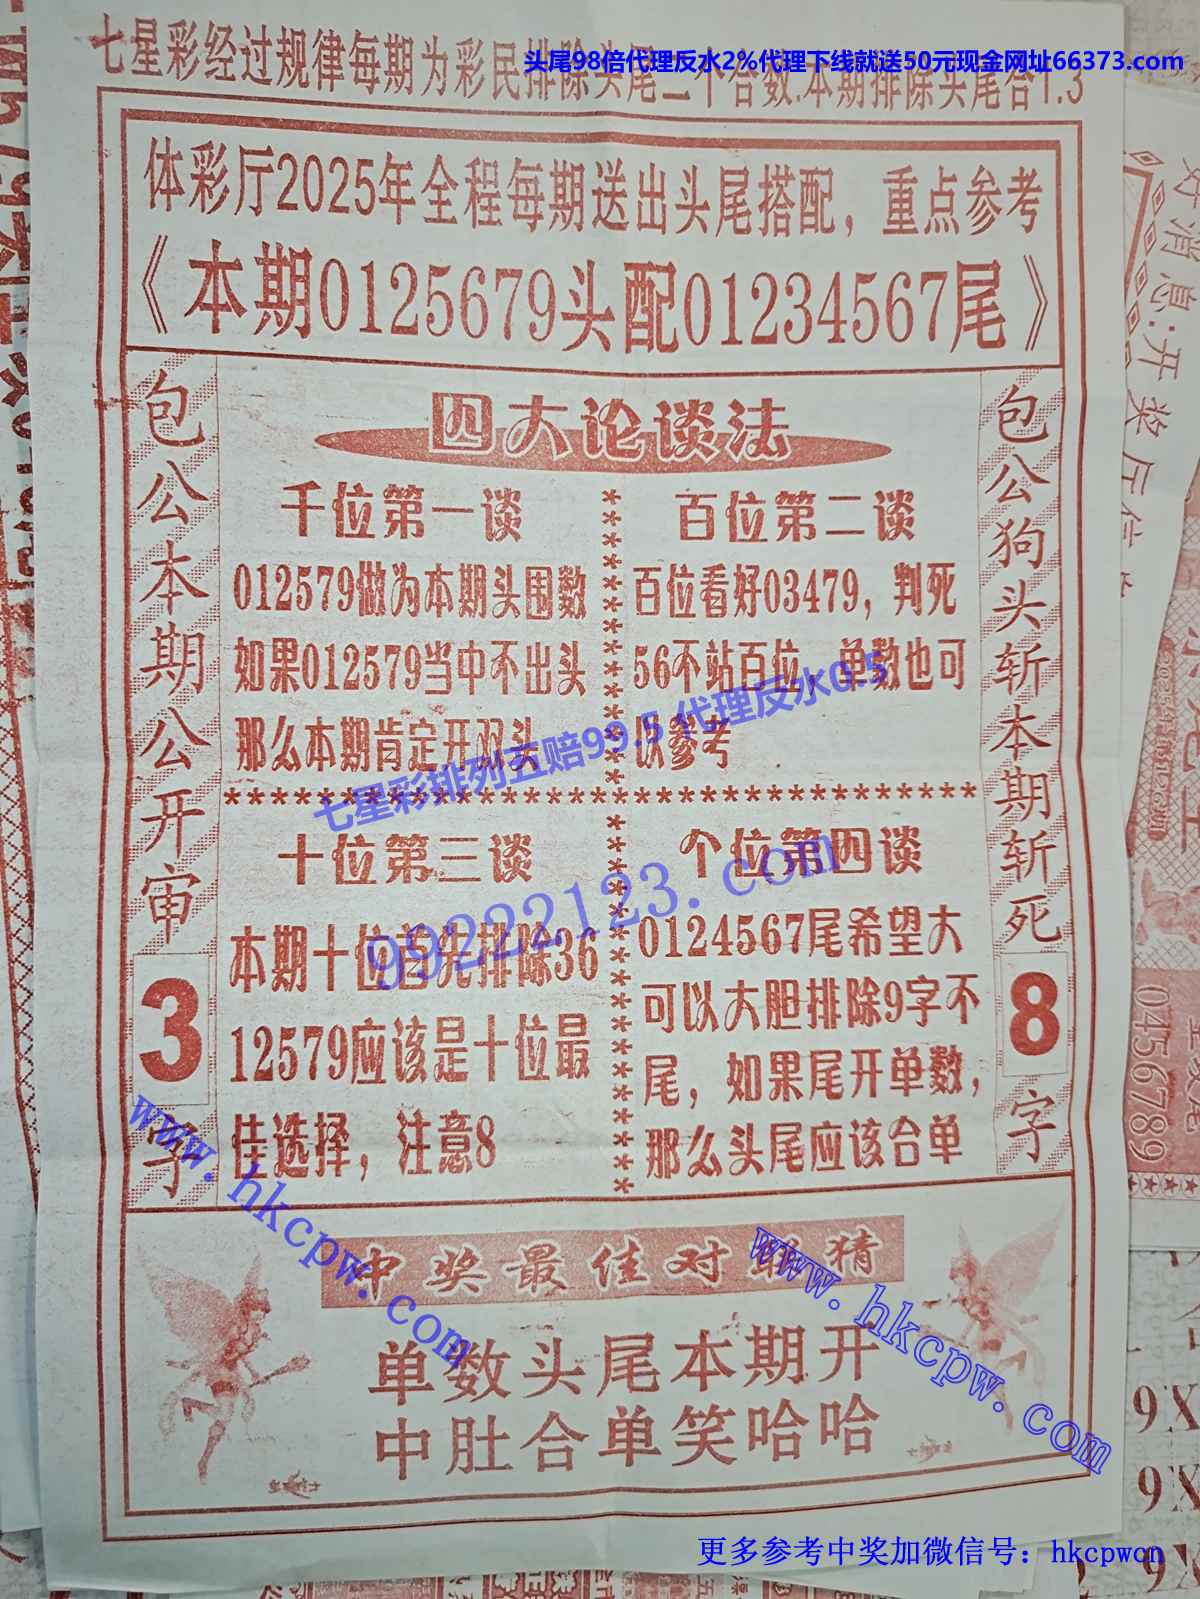 头尾98倍代理反水2%代理下线就送50元现金网址66373.com
七星彩经过规律每期为彩民排除头尾二个合数.本期排除头尾合1.3
体彩厅2025年全程每期送出头尾搭配，重点参考
《本期0125679头配01234567尾》
包公本期公开审3字
四大论谈法
千位第一谈
012579做为本期头围数
如果012579当中不出头
那么本期肯定开双头
百位第二谈
百位看好03479，判死
56不站百位，单数也可
以参考
七星彩排列五赔99.5 代理反水0.5
****************************
十位第三谈
本期十位首先排除36
12579应该是十位最
佳选择，注意8
99222123.com
个位第四谈
0124567尾希望大
可以大胆排除9字不
尾，如果尾开单数，
那么头尾应该合单
包公狗头斩本期斩死8字
www.hkcpw.com
中奖最佳对联猜
www.hkcpw.com
单数头尾本期开
中肚合单笑哈哈
更多参考中奖加微信号：hkcpwcn
好消息:开奖厅
0456789
9X
9X
9X